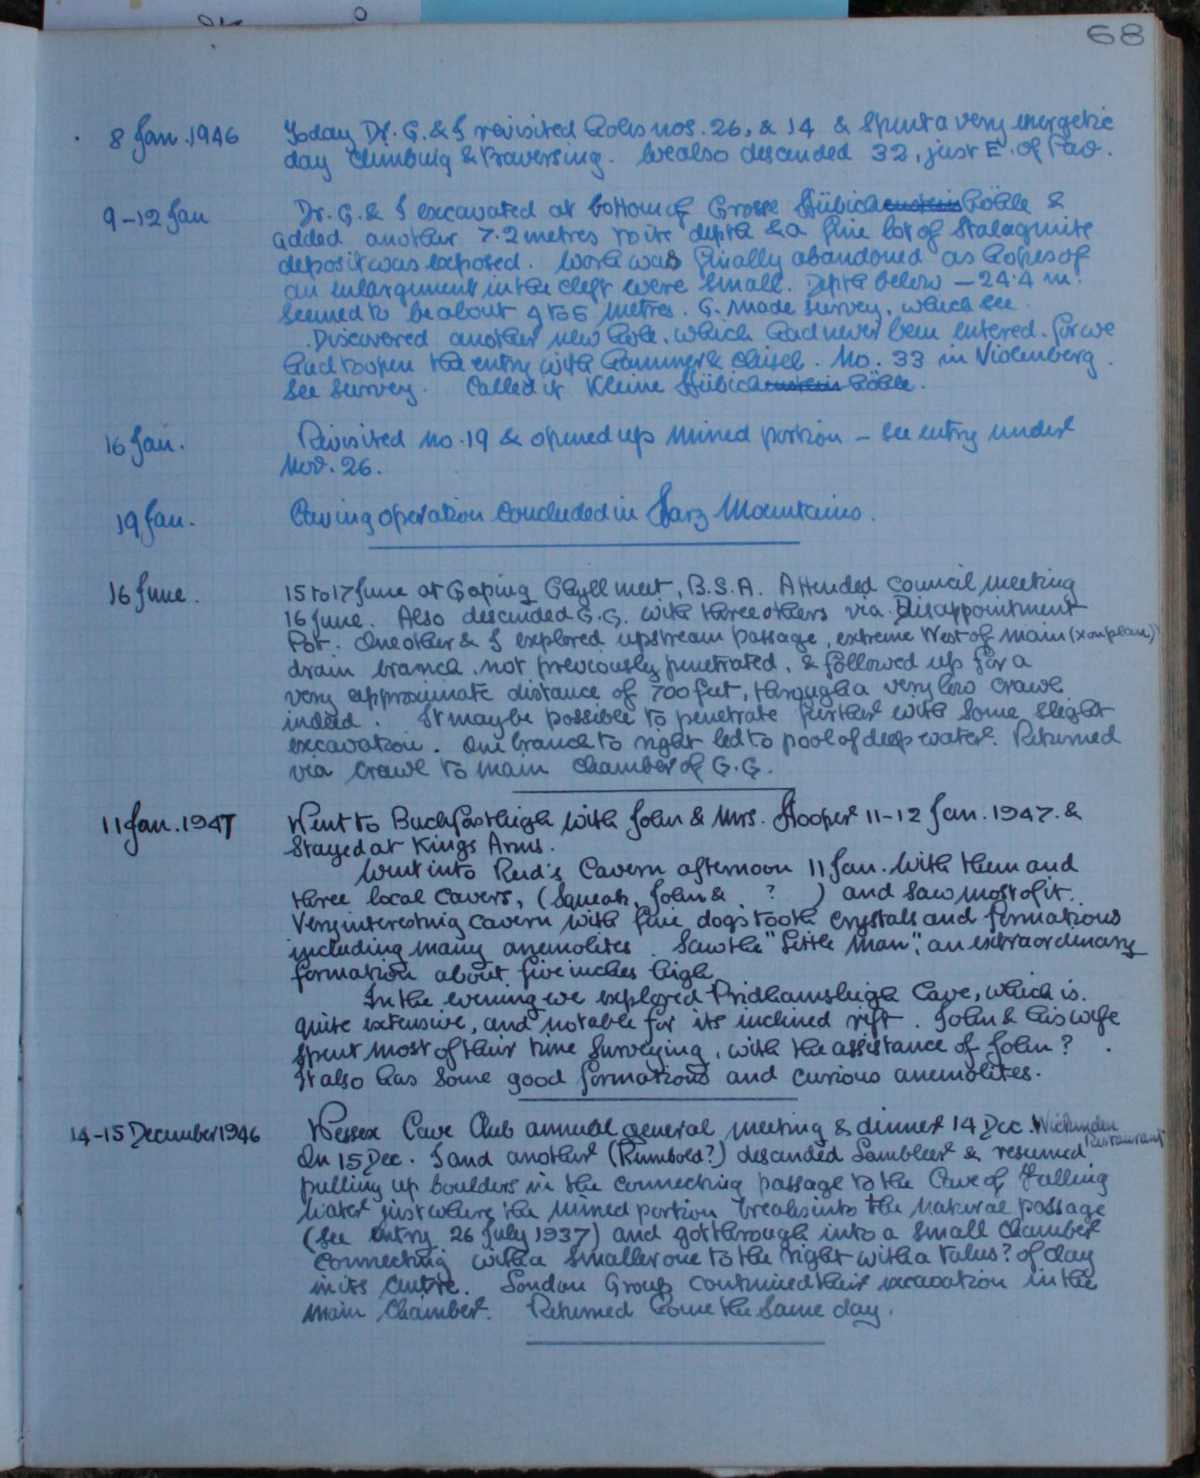 68
8 Jan. 1946 Today Dr. G. & I revisited holes nos. 26, & 14 & spent a very energetic
day climbing & traversing. We also descended 32, just E. of
9-12 Jan Dr. G. & I excavated at bottom of Grosse Stübich höhle &
added another 7.2 metres to its depth & a fine lot of stalagmite
deposit was exposed. Work was finally abandoned as hopes of
an enlargement in the cleft were small. Depth below - 24.4 m.
seemed to be about 4 to 5 metres. G. made survey, which see.
Discovered another new hole, which had never been entered, for we
had to open the entry with hammer & chisel. No. 33 in Vixenberg.
See survey. Called it Kleine Stübich höhle.
16 Jan. Revisited no. 19 & opened up mined portion - see entry under
Nov. 26.
19 Jan. Caving operation concluded in Harz Mountains.
16 June. 15 to 17 June at Gaping Ghyll meet, B.S.A. Attended council meeting
16 June. Also descended G.G. with three others via Disappointment
Pot. One other & I explored upstream passage, extreme West of main (x on plan)
drain branch, not previously penetrated, & followed up for a
very approximate distance of 700 feet, through a very low crawl
indeed. It may be possible to penetrate further with some slight
excavation. One branch to right led to pool of deep water. Returned
via crawl to main chamber of G.G.
11 Jan. 1947 Went to Buckfastleigh with John & Mrs. Hooper 11-12 Jan. 1947. &
Stayed at Kings Arms.
Went into Reed's Cavern afternoon 11 Jan. with them and
three local cavers, (Squeak, John & ? ) and saw most of it.
Very interesting cavern with fine dogstooth crystals and formations
including many anemolites. Saw the "Little Man", an extraordinary
formation about five inches high.
In the evening we explored Pridhamsleigh Cave, which is
quite extensive, and notable for its inclined rift. John & his wife
spent most of their time surveying, with the assistance of John?
It also has some good formations and curious anemolites.
14-15 December 1946 Wessex Cave Club annual general meeting & dinner 14 Dec. Wickenden
Restaurant
On 15 Dec. I and another (Rumbold?) descended Lambleer & resumed
pulling up boulders in the connecting passage to the Cave of Falling
Water just where the mined portion breaks into the natural passage
(see entry 26 July 1937) and got through into a small chamber
connecting with a smaller one to the right with a talus? of clay
in its centre. London Group continued their excavation in the
main chamber. Returned home the same day.